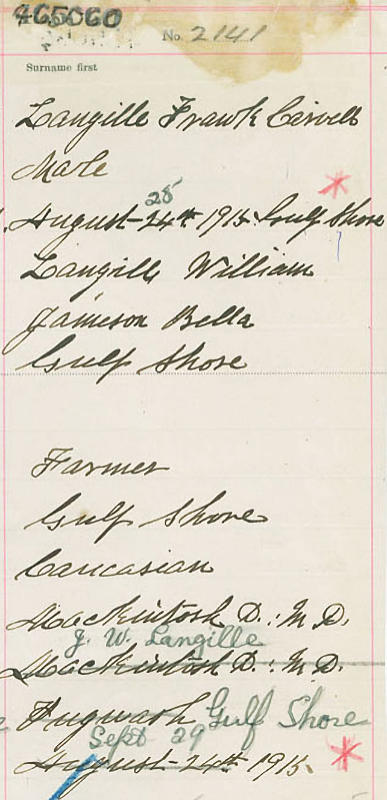 465060
No. 2141
Surname first
Langille Frank Cirvell
Male
25
August 24th 1915 Gulf Shore
Langille William
Jameson Bella
Gulf Shore
Farmer
Gulf Shore
Caucasian
Mackintosh D.: M.D.
J. W. Langille
Mackintosh D.: M.D.
Pugwash Gulf Shore
Sept 29
August 24th 1915.